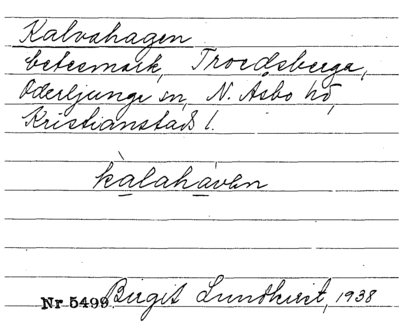 Kalvahagen
betesmark, Troedsberga,
Oderljunga sn, N. Åsbo hd,
Kristianstads l.
kàlahávan
Nr 5499 Birgit Lundkvist, 1938